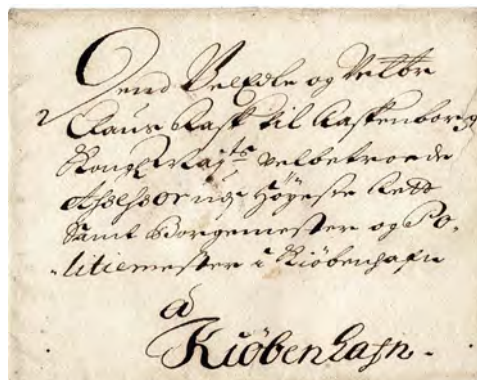 Velædle og Velbr
Claus Rask til Raskenborg
Kongl Maj.ts velbetroede
Assessor udj Høyeste Rett
Samt Borgemester og Po-
-litiemester i Kiöbenhafn
a
Kiöbenhafn.